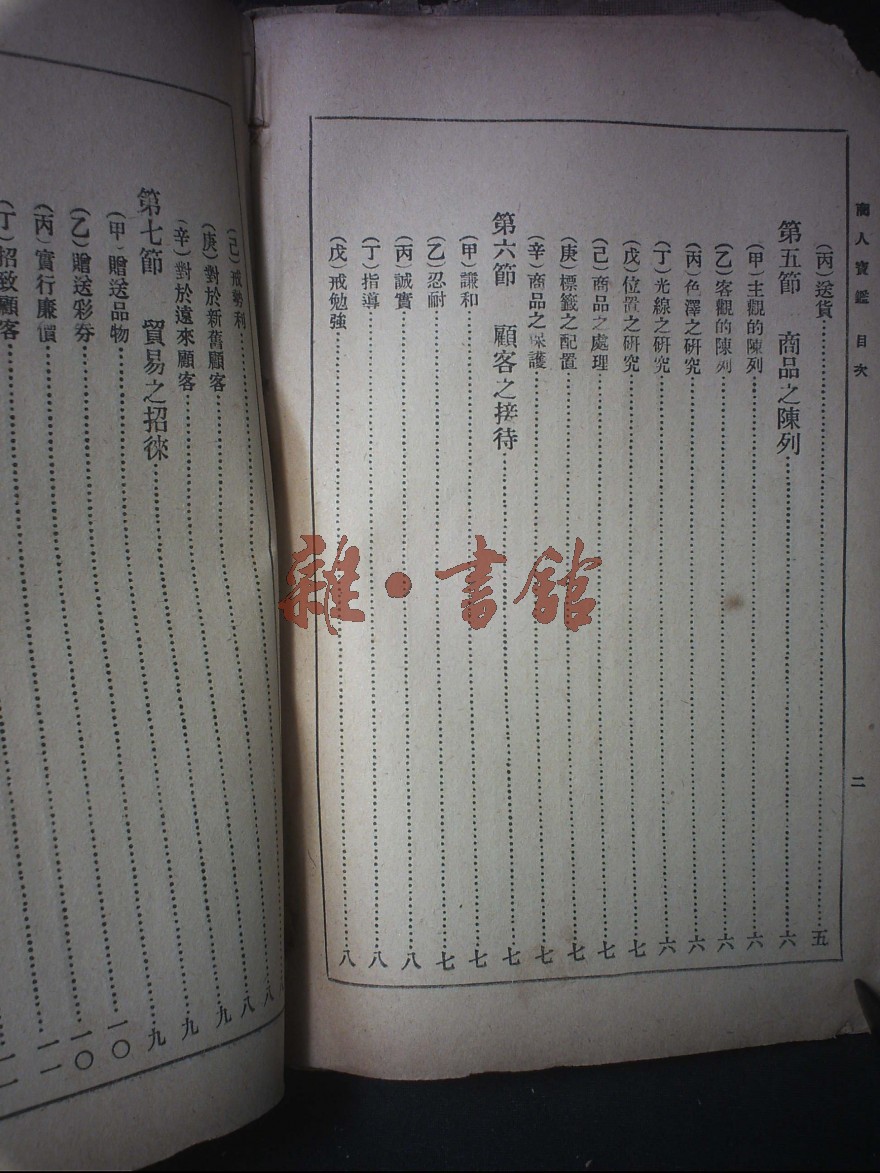 商人寶鑑 目次 二
(丙)送貨……五
第五節 商品之陳列……六
(甲)主觀的陳列……六
(乙)客觀的陳列……六
(丙)色澤之研究……六
(丁)光線之研究……六
(戊)位置之研究……七
(己)商品之處理……七
(庚)標籤之配置……七
(辛)商品之保護……七
第六節 顧客之接待……七
(甲)謙和……七
(乙)忍耐……七
(丙)誠實……八
(丁)指導……八
(戊)戒勉強……八
(己)戒勢利……八
(庚)對於新舊顧客……八
(辛)對於遠來顧客……九
第七節 貿易之招徠……九
(甲)贈送品物……九
(乙)贈送彩券……一〇
(丙)實行廉價……一〇
(丁)招致顧客……一一
雜·書館